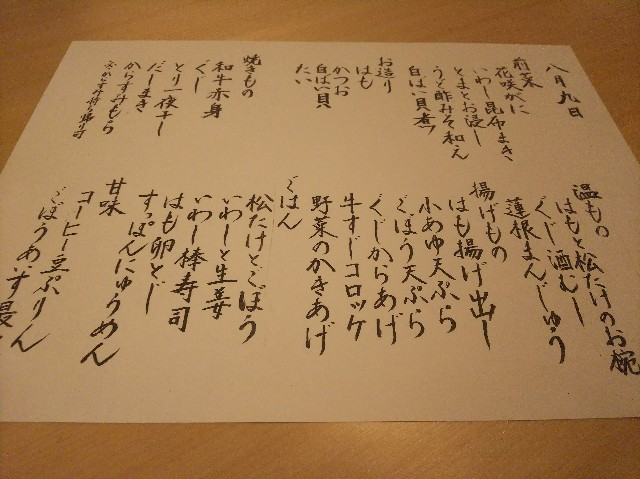 八月九日
前菜
花咲がに
いわし昆布まき
とまとお浸し
うど酢みそ和え
白ばい貝煮
お造り
はも
かつお
白ばい貝
たい
焼きもの
和牛赤身
ぐじ
とり一夜干し
だしまき
からすみもち
からすみ持ち帰り可
温もの
はもと松たけのお椀
ぐじ酒むし
蓮根まんじゅう
揚げもの
はも揚げ出し
小あゆ天ぷら
ごぼう天ぷら
ぐじからあげ
牛すじコロッケ
野菜のかきあげ
ごはん
松たけとごぼう
いわしと生姜
いわし棒寿司
はも卵とじ
すっぽんにゅうめん
甘味
コーヒー豆ぷりん
ごぼうあいす最